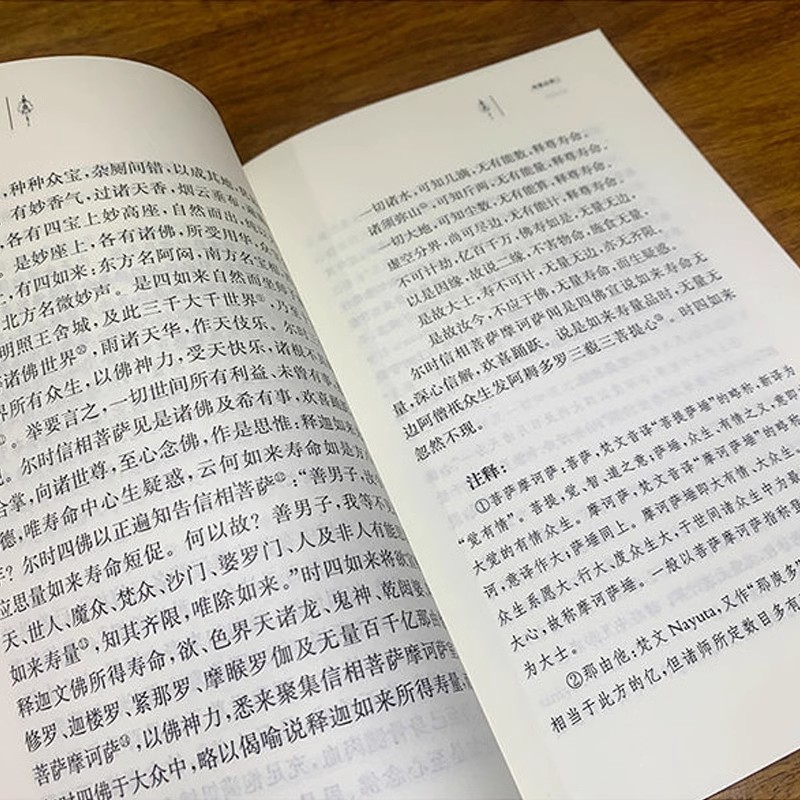 ，种种众宝，杂厕间错，以成其地，
有妙香气，过诸天香，烟云垂布，
，各有四宝上妙高座，自然而出，
。是妙座上，各有诸佛，所受用华，
，有四如来：东方名阿閦，南方名宝相，
北方名微妙声。是四如来自然而坐师子
明照王舍城，及此三千大千世界
诸佛世界，雨诸天华，作天伎乐。尔时
界所有众生，以佛神力，受天快乐，诸根不
。举要言之，一切世间所有利益、未曾有事，
。尔时信相菩萨见是诸佛及希有事，欢喜踊
合掌，向诸世尊，至心念佛，作是思惟：释迦如来
德，唯寿命中心生疑惑，云何如来寿命如是方
？尔时四佛以正遍知告信相菩萨⑫：“善男子，
应思量如来寿命短促。何以故？善男子，我等不
天、世人、魔众、梵众、沙门、婆罗门、人及非人有能
如来寿量，知其齐限，唯除如来。”时四如来将欲宣
释迦文佛所得寿命，欲、色界天诸龙、鬼神、乾闼婆、
修罗、迦楼罗、紧那罗、摩睺罗伽及无量百千亿那由
菩萨摩诃萨，以佛神力，悉来聚集信相菩萨摩诃萨
时四佛于大众中，略以偈喻说释迦如来所得寿量，
一切诸水，可知几滴，无有能数，释尊寿命。
诸须弥山，可知斤两，无有能量，释尊寿命。
一切大地，可知尘数，无有能算，释尊寿命。
虚空分界，尚可尽边，无有能计，释尊寿命。
不可计劫，亿百千万，佛寿如是，无量无边，
以是因缘，故说二缘，不害物命，施食无量。
是故大士，寿不可计，无量无边，亦无齐限。
是故汝今，不应于佛，无量寿命，而生疑惑。
尔时信相菩萨摩诃萨闻是四佛宣说如来寿命无
量，深心信解，欢喜踊跃。说是如来寿量品时，无量无
边阿僧祇众生发阿耨多罗三藐三菩提心。时四如来
忽然不现。
注释：
①菩萨摩诃萨：菩萨，梵文音译“菩提萨埵”的略称，新译为
“觉有情”。菩提，觉、智、道之意；萨埵，众生、有情之义，意即
大觉的有情众生。摩诃萨，梵文音译“摩诃萨埵”的略称
诃，意译作大；萨埵同上。摩诃萨埵即大有情、大众生。
众生系愿大、行大、度众生大，于世间诸众生中为最
大心，故称摩诃萨埵。一般以菩萨摩诃萨指称登
为大士。
②那由他：梵文 Nayuta，又作“那庾多
相当于此方的亿，但诸师所定数目多有